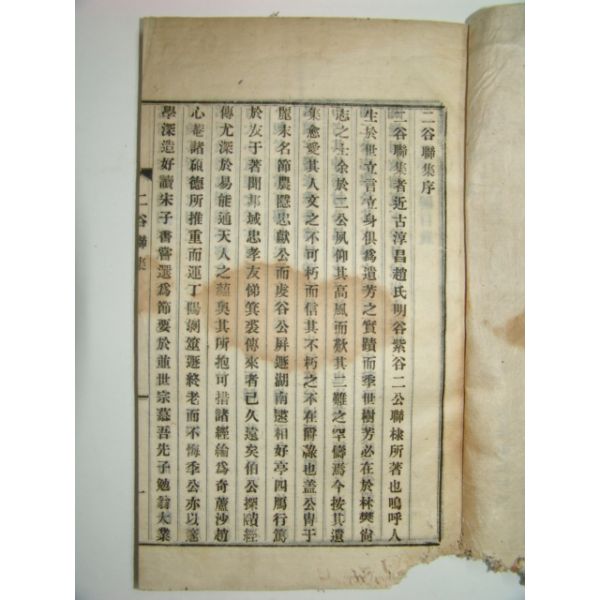 二谷聯集序
二谷聯集者近古淳昌趙氏明谷紫谷二公聯棣所著也嗚呼人
生於世立言立身俱爲遺芳之實蹟而季世樹芳必在於林樊尙
志之士余於二公夙仰其高風而歎其二難之罕儔焉今按其遺
集愈愛其人文之不可朽而信其不朽之不在爵祿也盖公冑于
麗末名節農隱忠獻公而虔谷公屛遯湖南遂相好亭四
於友于著聞邦域忠孝友悌箕裘傳來者已久遠矣伯公探賾經
傳尤深於易能通天人之蘊奧其所抱可措諸經綸爲奇蘆沙趙
心菴諸碩德所推重而運丁陽剝遯終老而不悔季公亦以
學深造好讀宋子書嘗選爲節要於並世宗慕吾先子勉翁大業
二谷聯集
一